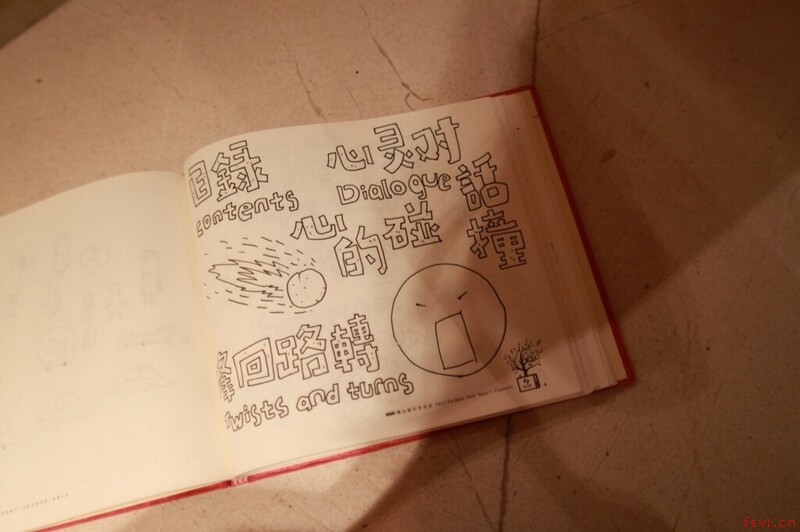 目錄
contents
心灵对話
Dialogue
心的碰撞
峰回路轉
Twists and turns
fsvi.cn